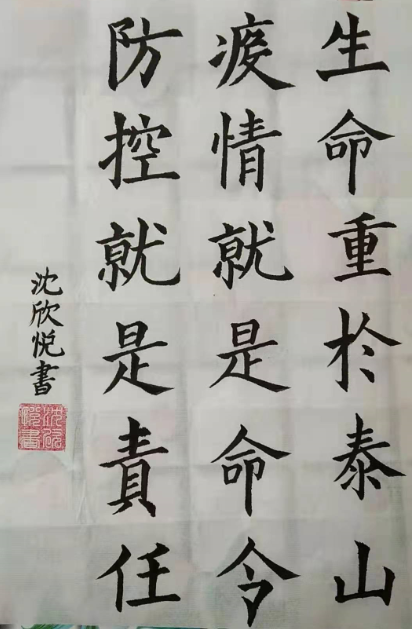 生命重於泰山
疫情就是命令
防控就是責任
沈欣悦書